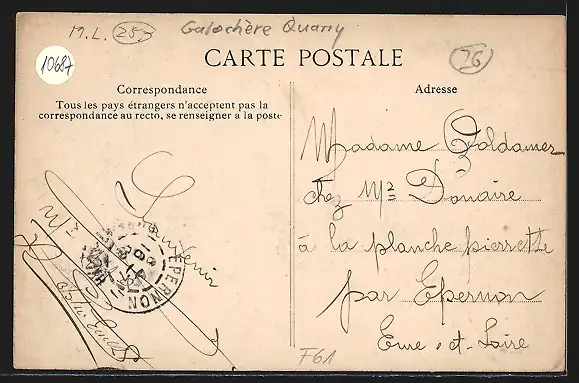 M.L. 257 Galochère Quarry
10687
CARTE POSTALE
76
Correspondance
Tous les pays étrangers n'acceptent pas la
correspondance au recto, se renseigner à la poste
Souvenir
EPERNON
Adresse
Madame Goldames
chez Mr Donaire
à la planche pierrette
par Epernon
Eure-et-Loire
F61